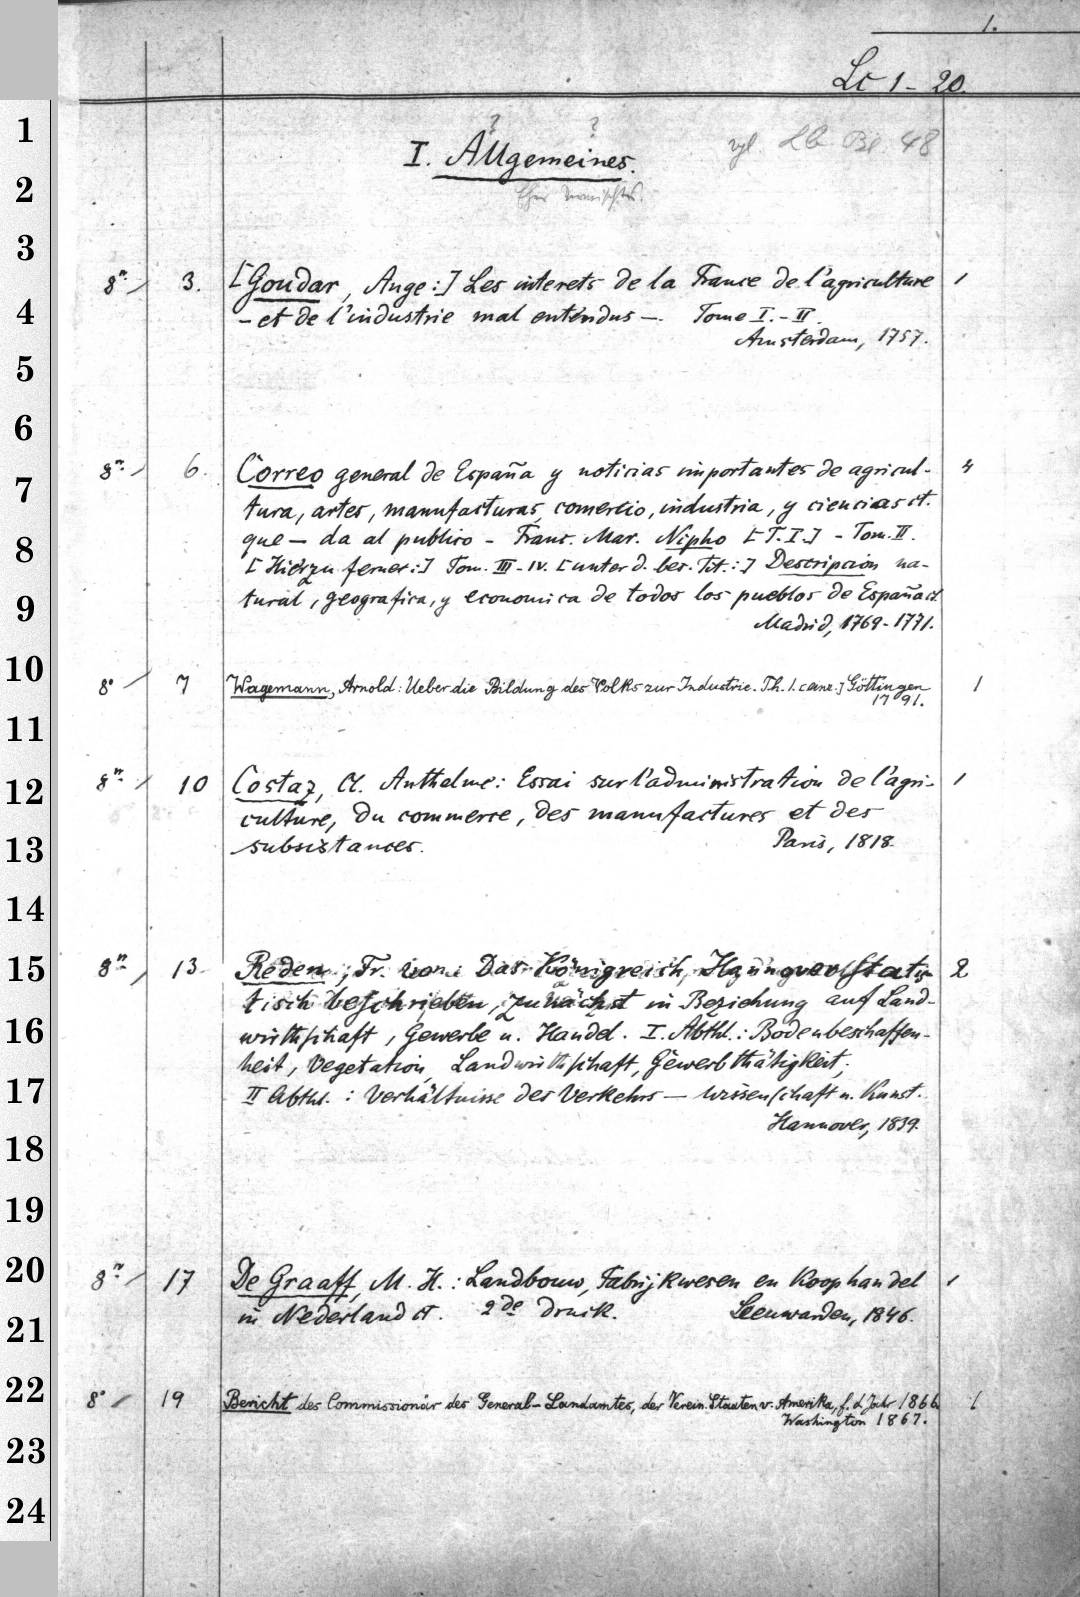 1.
Lc 1-20.
? ?
I. Allgemeines. vgl. Bl. 48
Eher Vermischtes.
8n. / 3. [Goudar, Ange:] Les interets de la France de l'agriculture 1
- et de l'industrie mal entendus -. Tome I.-II.
Amsterdam, 1757.
8n. / 6. Correo general de España y noticias importantes de agricul- 4
tura, artes, manufacturas, comercio, industria, y ciencias ct.
que - da al publico - Franc. Mar. Nipho [T.I.] - Tom. II.
[Hierzu ferner:] Tom. III-IV. [unter d. bes. Tit.:] Descripcion na-
tural, geografica, y economica de todos los pueblos de España ct.
Madrid, 1769-1771.
8° / 7 Wagemann, Arnold: Ueber die Bildung des Volks zur Industrie. Th. 1. Göttingen 1
1791.
8n. / 10 Costaz, Cl. Anthelme: Essai sur l'administration de l'agri- 1
culture, du commerce, des manufactures et des
subsistances. Paris, 1818.
8n. / 13. Reden, Fr. von: Das Königreich Hannover statis- 2
tisch beschrieben, zunächst in Beziehung auf Land-
wirthschaft, Gewerbe u. Handel. I. Abthl.: Bodenbeschaffen-
heit, Vegetation, Landwirthschaft, Gewerbthätigkeit;
II Abthl.: Verhältnisse des Verkehrs - Wissenschaft u. Kunst.
Hannover, 1839.
8n. / 17 De Graaff, M. H.: Landbouw, Fabrijkwesen en Koophandel 1
in Nederland ct. 2de Druck. Leeuwarden, 1846.
8° / 19 Bericht des Commissionär des General-Landamtes, der Verein. Staaten v. Amerika, f. d. Jahr 1866. 1
Washington 1867.
1
2
3
4
5
6
7
8
9
10
11
12
13
14
15
16
17
18
19
20
21
22
23
24